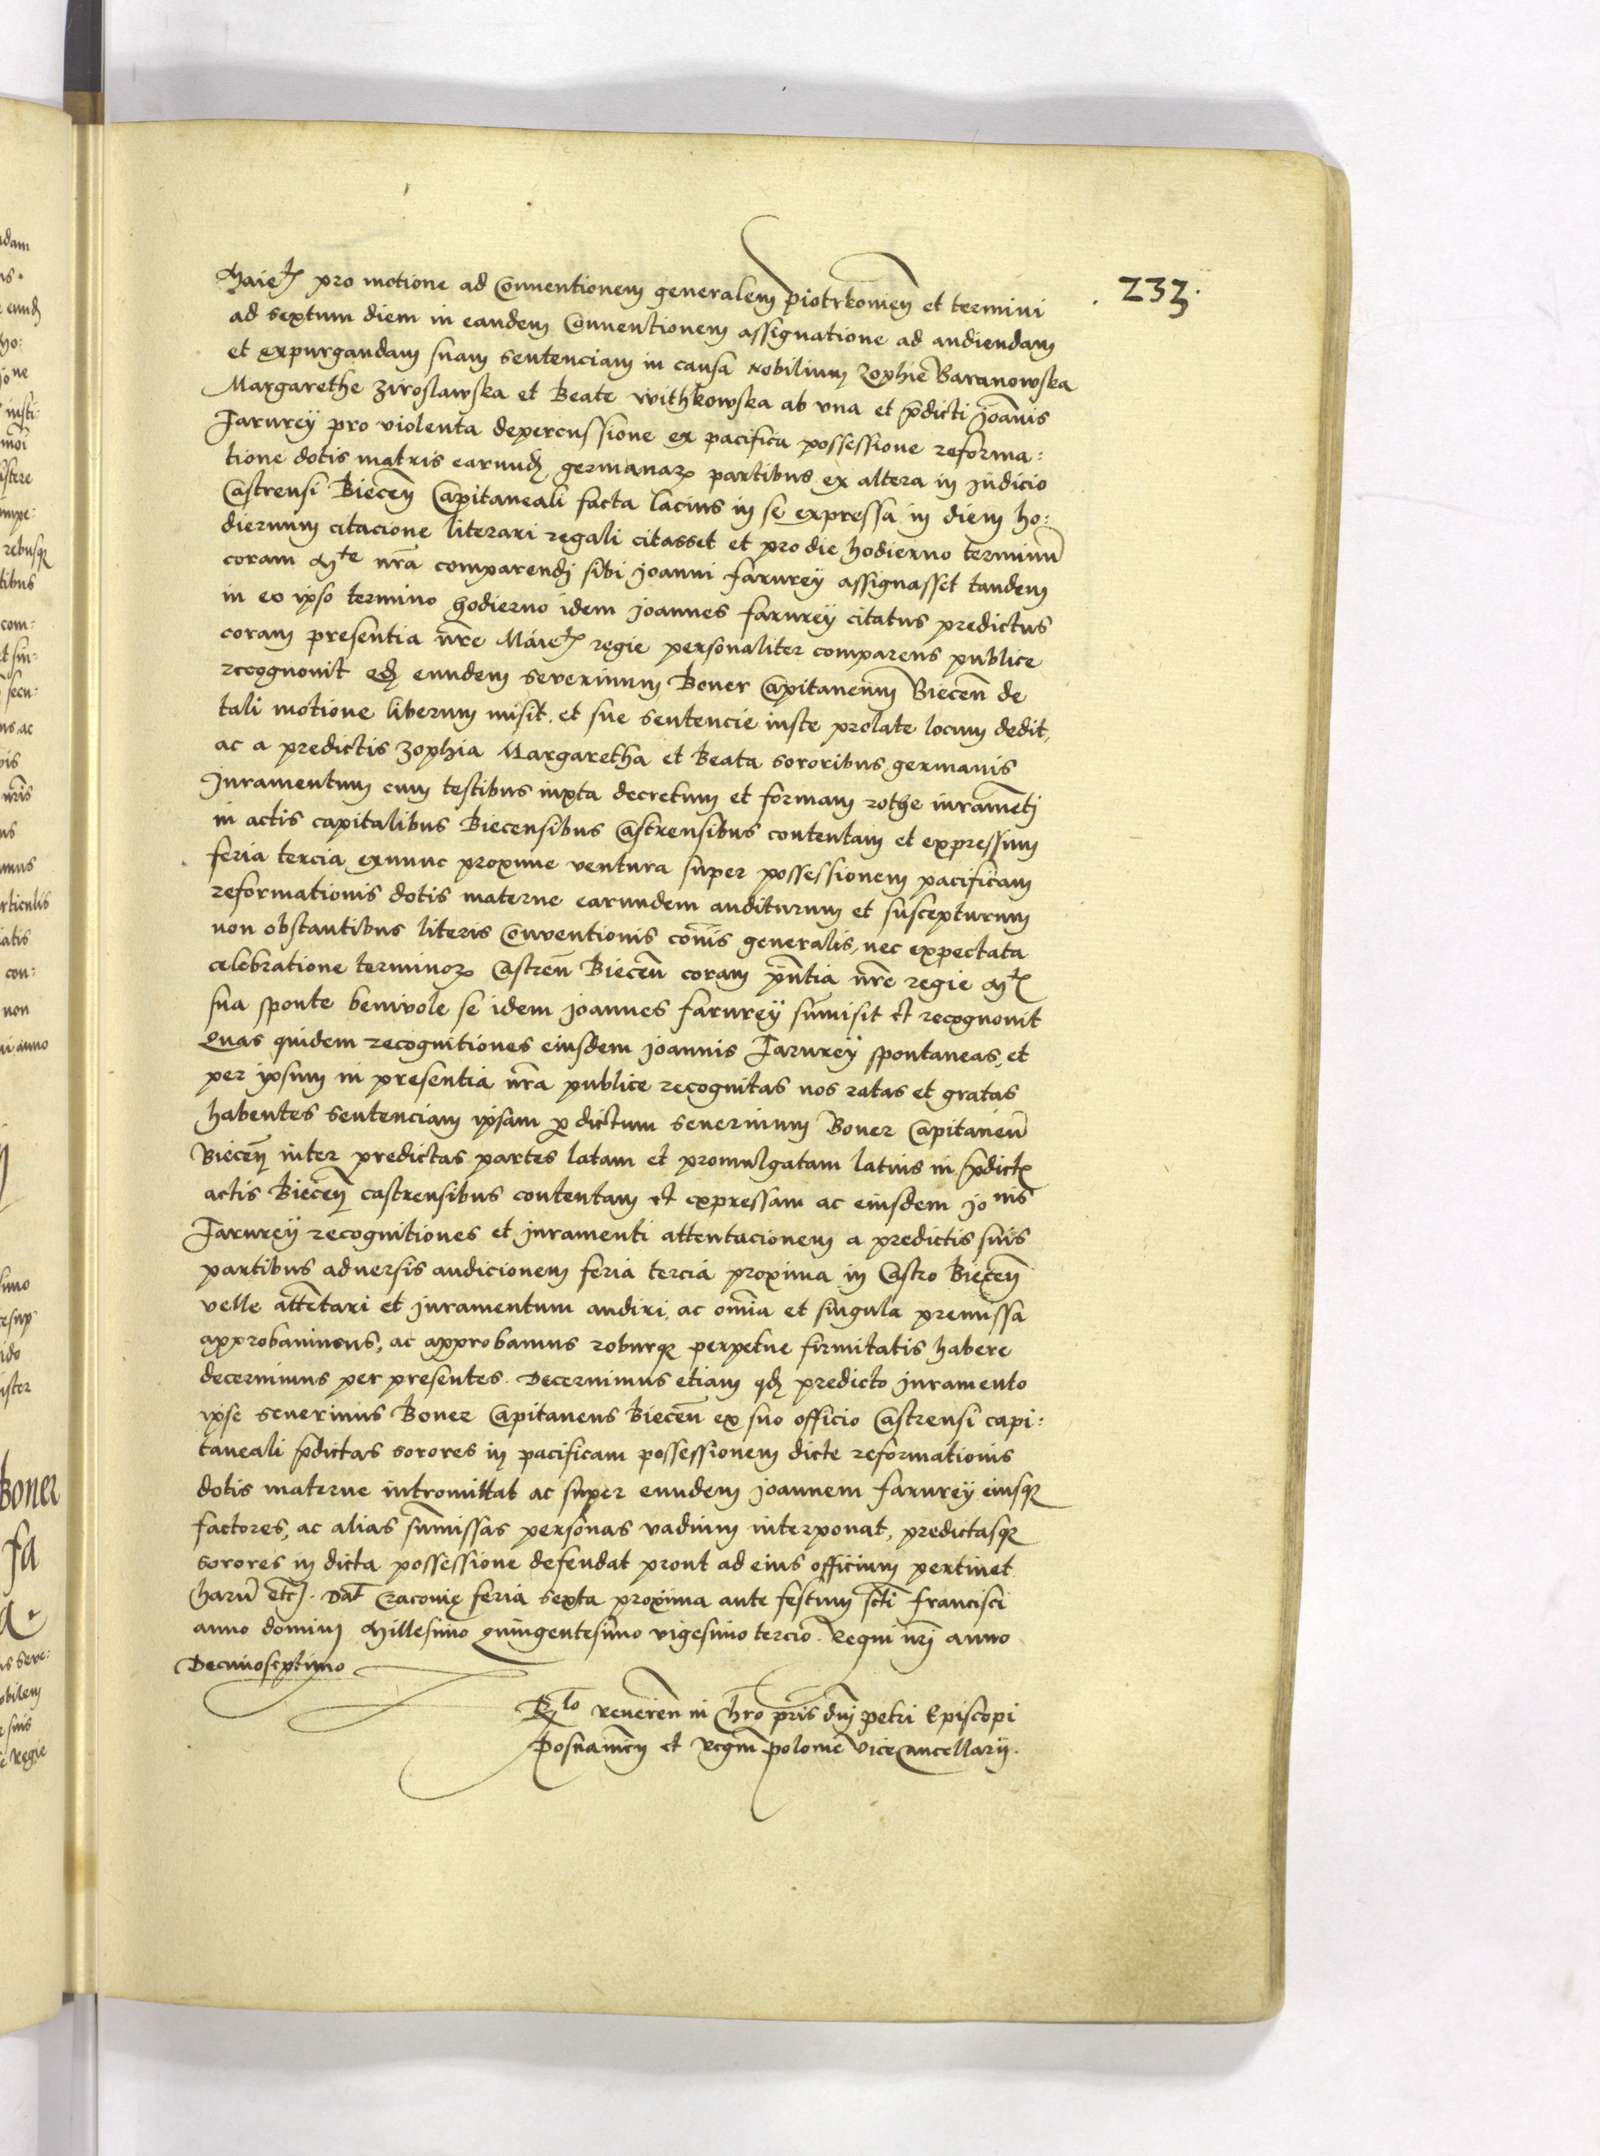 233.
Maiet. pro motione ad Conventionem generalem piotrkovien̄ et termini
ad sextum diem in eandem Conventionem assignatione ad audiendam
et expurgandam suam sentenciam in causa nobilium Zophie Baranowska
Margarethe Ziroslawska et Beate withkowska ab vna et p̄dicti Joānis
Farurey pro violenta depercussione ex pacifica possessione reforma:
tione dotis matris earund. germanar. partibus ex altera in judicio
Castrensi Biecen̄ Capitaneali facta lacius in se expressa in diem ho:
diernum citacione literari regali citasset et pro die hodierno terminū
coram Mte nr̄a comparendj sibi Joanni farurey assignasset tandem
in eo ipso termino hodierno idem Joannes farurey citatus predictus
coram presentia nr̄e Maiet. regie personaliter comparens publice
recognovit qd. eundem severinum Boner Capitaneum Biecen̄ de
tali motione liberum misit. et sue sentencie iuste prolate locum dedit,
ac a predictis Zophia Margaretha et Beata sororibus germanis
Juramentum cum testibus iuxta decretum et formam rothe iuramētj
in actis capitalibus Biecensibus Castrensibus contentam et expressum
feria tercia exnunc proxime ventura super possessionem pacificam
reformationis dotis materne earundem auditurum et suscepturum
non obstantibus literis Conventionis cōnis generalis, nec expectata
celebratione terminor. Castren̄ Biecen̄ coram pn̄tia nr̄e regie Mt.
sua sponte benivole se idem Joannes farurey sūmisit et recognovit
Quas quidem recognitiones eiusdem Joannis Farurey spontaneas, et
per ipsum in presentia nr̄a publice recognitas nos ratas et gratas
habentes sentenciam ipsam p. dictum severinum Boner Capitaneū
Biecen̄ inter predictas partes latam et promulgatam latius in p̄dict.
actis Biecen̄ castrensibus contentam et expressam ac eiusdem Jonis
Farurey recognitiones et juramenti attentacionem a predictis suis
partibus adversis audicionem feria tercia proxima in Castro Biecen̄
velle attētari et juramentum audiri, ac om̄ia et singula premissa
approbavimus, ac approbamus roburq. perpetue firmitatis habere
decernimus per presentes. Decernimus etiam qd. predicto juramento
ipse severinus Boner Capitaneus Biecen̄ ex suo officio Castrensi capi:
taneali p̄dictas sorores in pacificam possessionem dicte reformationis
dotis materne intromittat ac super eundem Joannem farurey eiusq.
factores, ac alias sūmissas personas vadium interponat, predictasq.
sorores in dicta possessione defendat prout ad eius officium pertinet
harū etc. Dat̄ Cracovię feria sexta proxima ante festum scti francisci
anno dominj Millesimo quingentesimo vigesimo tercio. Regni nr̄j anno
Decimoseptimo
Rlo Reveren̄ in Chr̄o pr̄is dn̄j petri Episcopi
Posnanien̄ et Regni polonie ViceCancellarij.